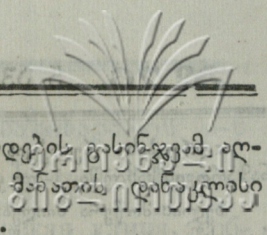 დების გასინჯვამ აღ-
მანათის დანაკლისი
.